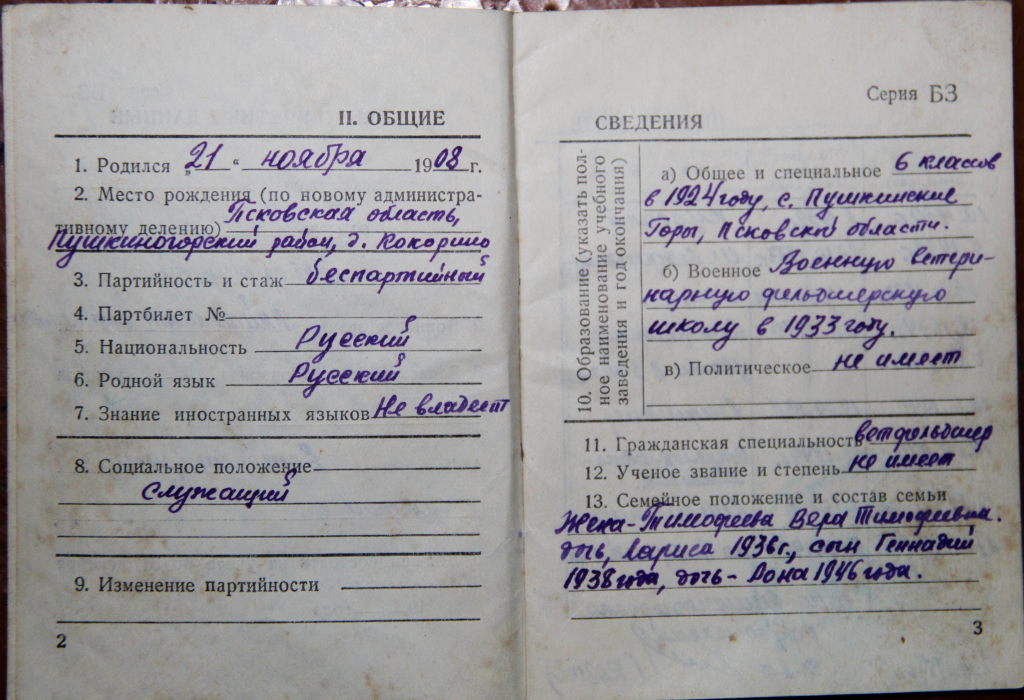 II. ОБЩИЕ
1. Родился „21" ноября 1908 г.
2. Место рождения (по новому администра-
тивному делению) Псковская область,
Пушкиногорский район, д. Кокорино
3. Партийность и стаж беспартийный
4. Партбилет №
5. Национальность Русский
6. Родной язык Русский
7. Знание иностранных языков Не владеет
8. Социальное положение
служащий
9. Изменение партийности
2
Серия БЗ
СВЕДЕНИЯ
10. Образование (указать пол-
ное наименование учебного
заведения и год окончания)
а) Общее и специальное 6 классов
в 1924 году, с. Пушкинские
Горы, Псковской области.
б) Военное Военную ветери-
нарную фельдшерскую
школу в 1933 году.
в) Политическое не имеет
11. Гражданская специальность ветфельдшер
12. Ученое звание и степень не имеет
13. Семейное положение и состав семьи
Жена - Тимофеева Вера Тимофеевна.
дочь, Лариса 1936 г., сын Геннадий
1938 года, дочь - Нона 1946 года.
3